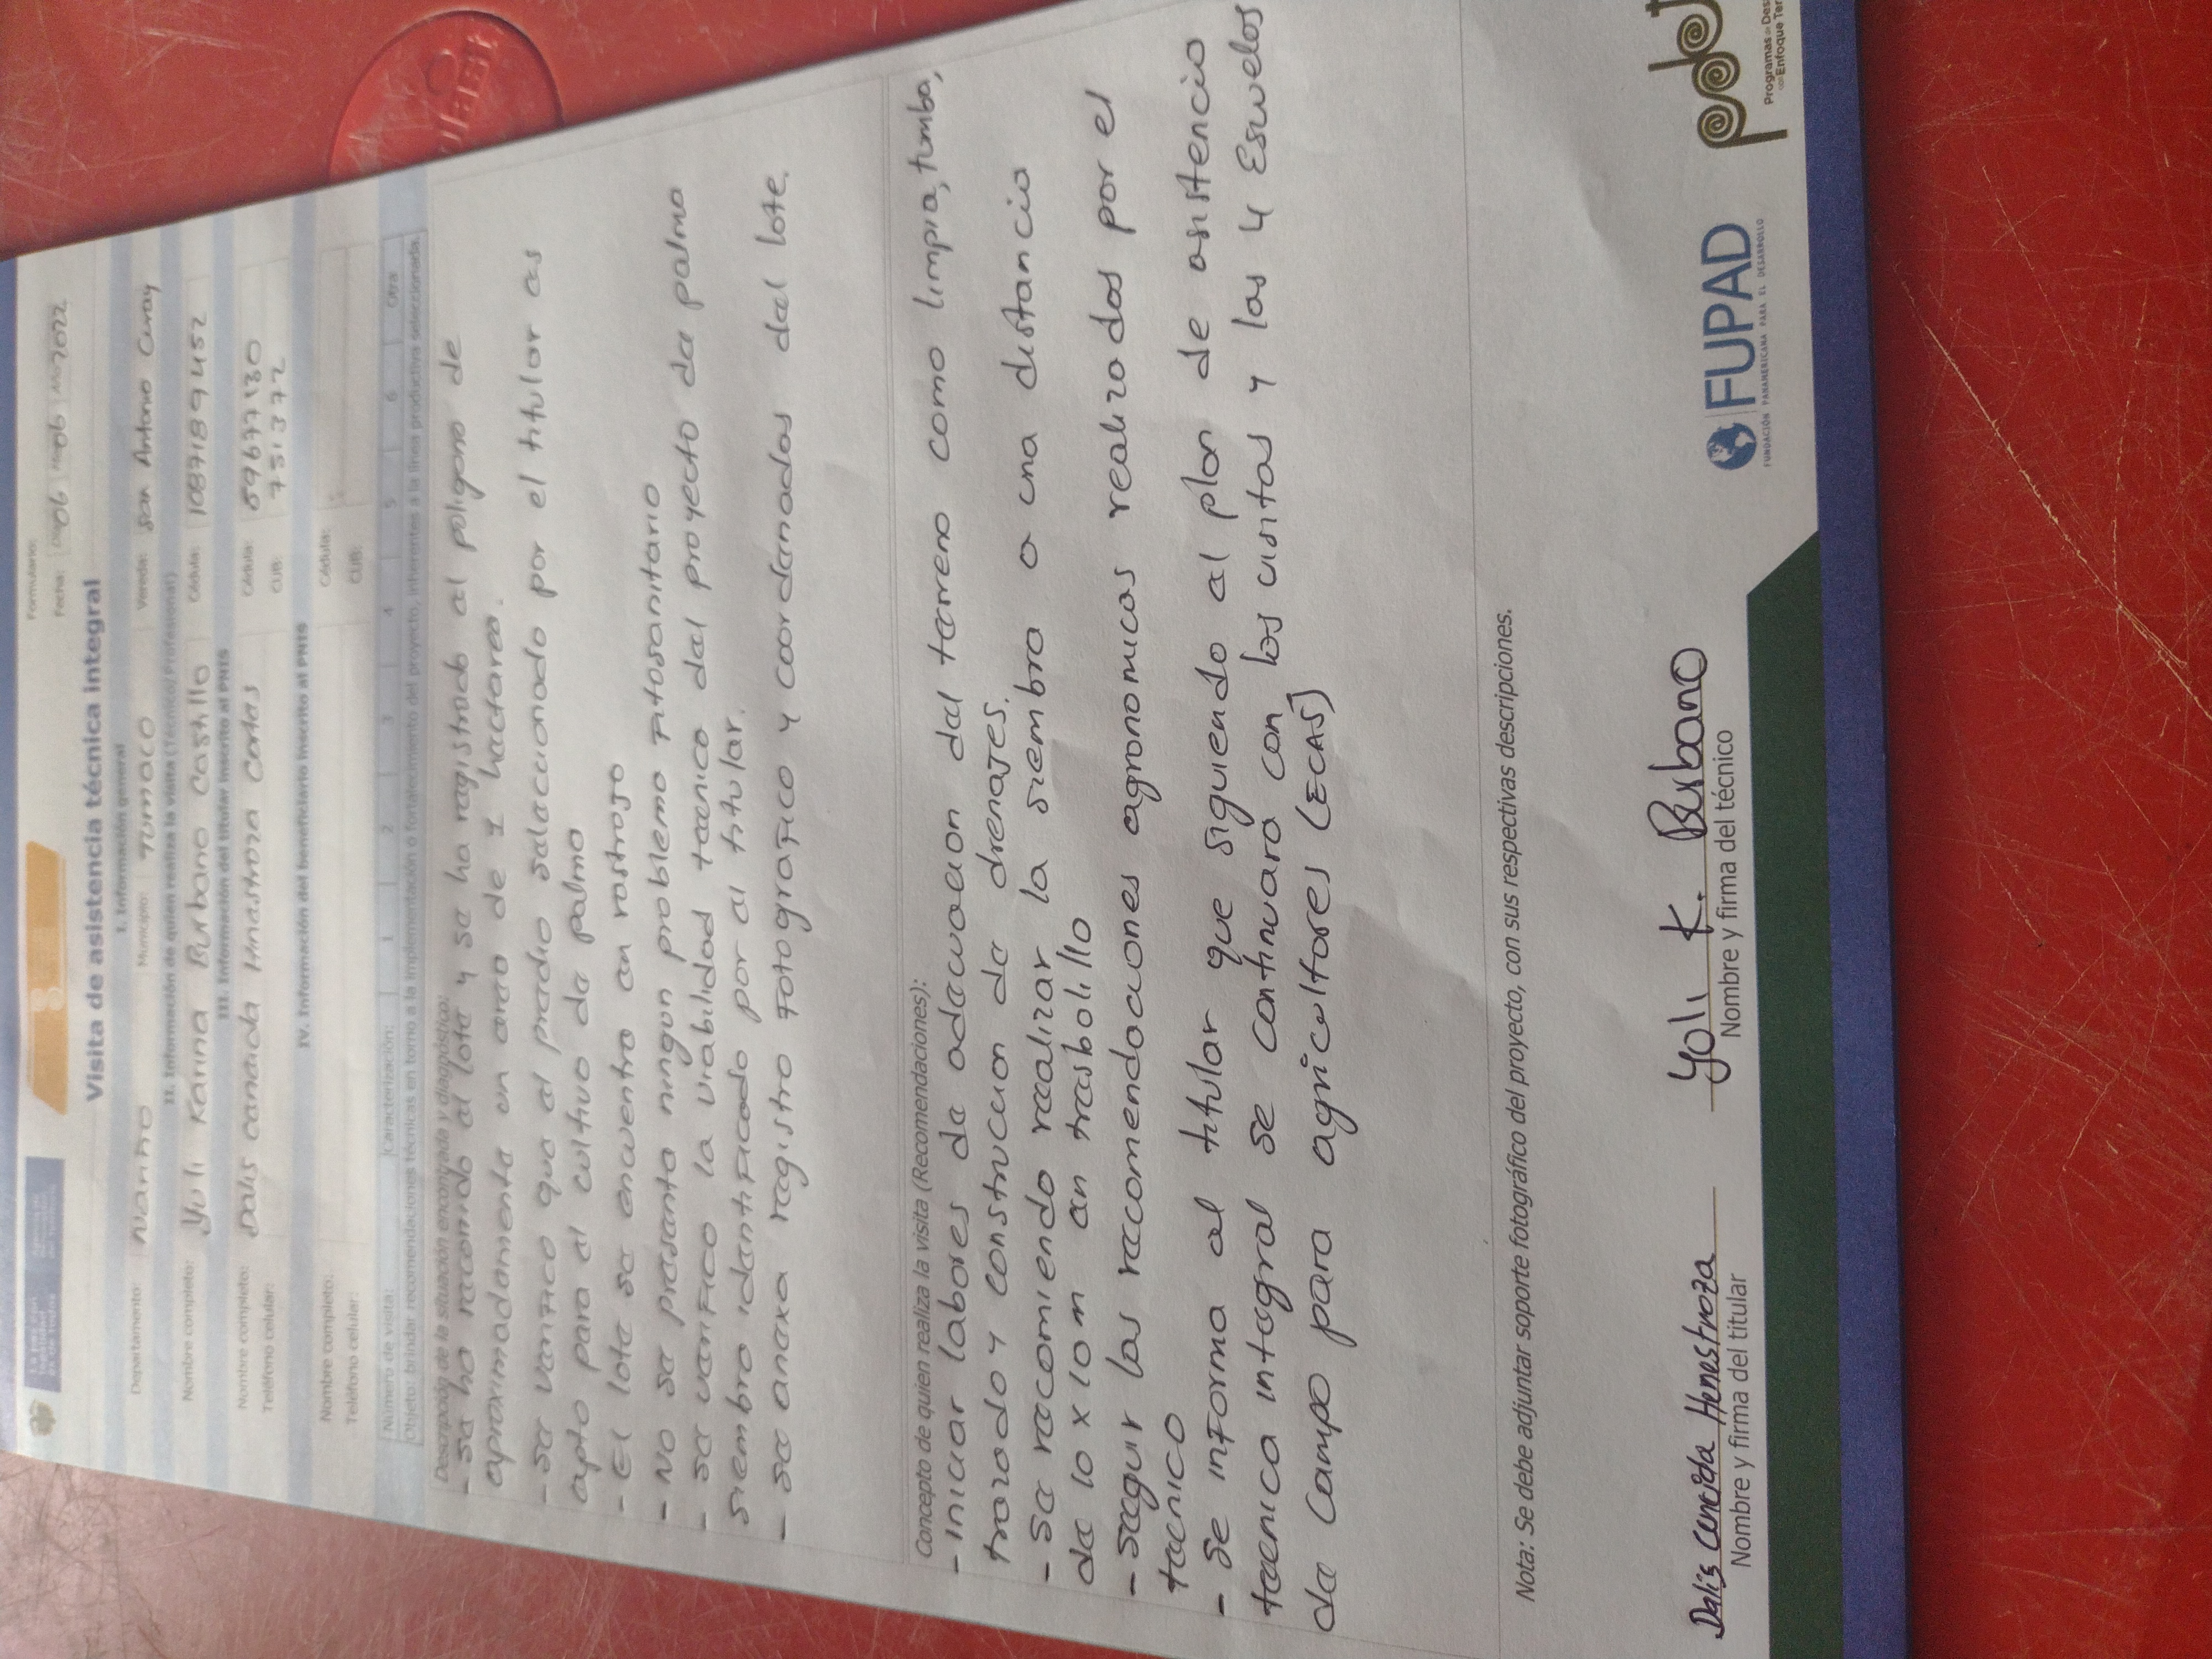 Formulario:
Fecha: Día 06 Mes 06 Año 2022
Visita de asistencia técnica integral
I. Información general
Departamento: Nariño Municipio: Tumaco Vereda: San Antonio Curay
II. Información de quien realiza la visita (Técnico/Profesional)
Nombre completo: Yuli Karina Burbano Castillo Cédula: 1087189452
III. Información del titular inscrito al PNIS
Nombre completo: Dalis canaida Hinastroza Cortes Cédula: 59677130
Teléfono celular: CUB: 751372
IV. Información del beneficiario inscrito al PNIS
Nombre completo: Cédula:
Teléfono celular: CUB:
Número de visita: Caracterización: 1 2 3 4 5 6 Otra
Objeto: brindar recomendaciones técnicas en torno a la implementación o fortalecimiento del proyecto, inherentes a la línea productiva seleccionada.
Descripción de la situación encontrada y diagnóstico:
- se ha recorrido al lote y se ha registrado al poligono de
aproximadamente un area de 1 hactarea.
- se verifico que al predio salaccionado por el titular as
apto para al cultivo de palma
- El lote se encuentra an rastrojo
- No se presenta ningun problema fitosanitario
- se verifico la viabilidad tecnico del proyecto da palma
siembra identificado por al titular.
- se anaxa registro fotografico y coordenadas dal lote.
Concepto de quien realiza la visita (Recomendaciones):
- Iniciar labores de adecuacion dal terreno como limpia, tumba,
trazado y construccion de drenajes.
- Se recomienda realizar la siembra a una distancia
de 10 x 10m an trasbolillo
- Seguir las recomendaciones agronomicas realizadas por el
tecnico
- Se informa al titular que siguiendo al plan de asistencia
tecnica integral se continuara con las visitas y las 4 Escuelas
de Campo para agricultores (ECAS)
Nota: Se debe adjuntar soporte fotográfico del proyecto, con sus respectivas descripciones.
DalisCeneida Henestroza Yuli K. Burbano
Nombre y firma del titular Nombre y firma del técnico
FUPAD
FUNDACIÓN PANAMERICANA PARA EL DESARROLLO